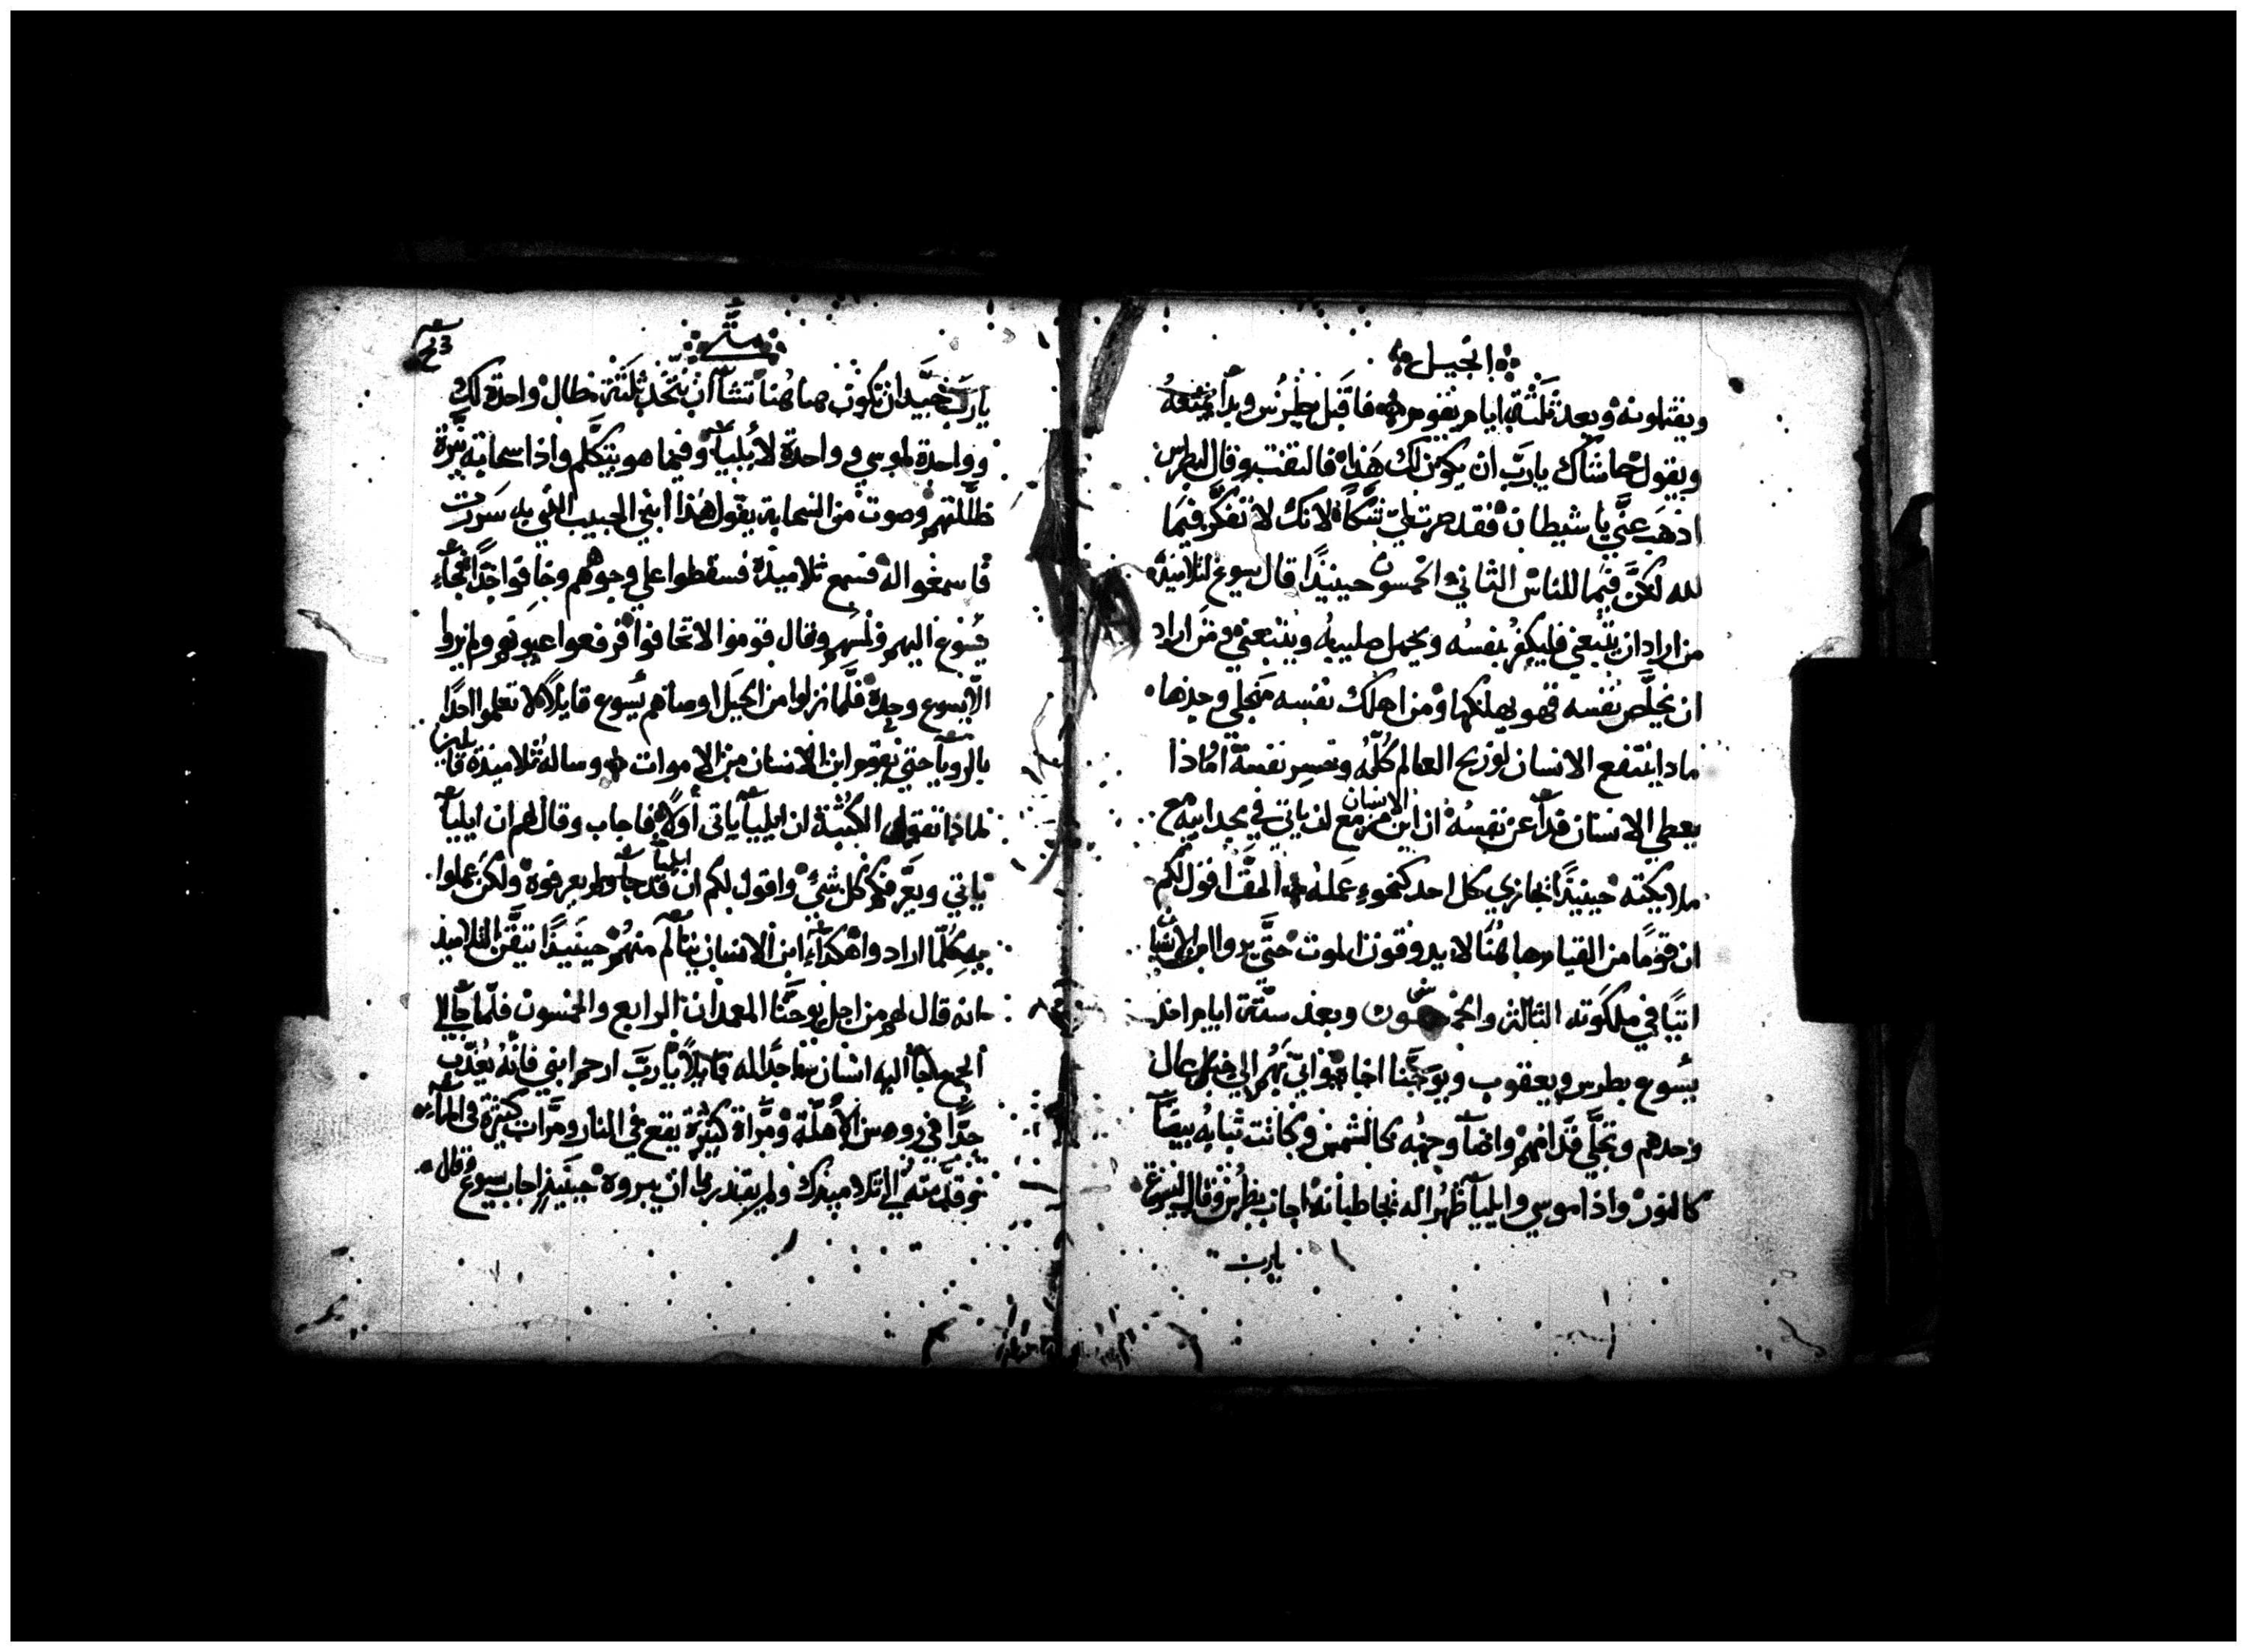 انجيل
ويقتلونه وبعد ثلثة ايام يقوم فاقبل بطرس وبدا يمنعه
ويقول حاشاك يارب ان يكون لك هذا فالتفت وقال لبطرس
اذهب عني يا شيطان فقد صرت لي شكا لانك لا تفكر فيما
لله لكن فيما للناس الثاني والخمسون حينيذا قال يسوع لتلاميذه
من اراد ان يتبعني فليكفر بنفسه ويحمل صليبه ويتبعني ومن اراد
ان يخلص نفسه فهو يهلكها ومن اهلك نفسه من اجلي وجدها
ماذا ينتفع الانسان لو ربح العالم كله وخسر نفسه اماذا
يعطي الانسان فدآ عن نفسه ان ابن الانسان مزمع ان ياتي في مجد ابيه مع
ملايكته حينيذا يجازي كل احد كنحو عمله الحق اقول لكم
ان قوما من القيام هاهنا لا يذوقون الموت حتى يروا ابن الانسان
اتيا في ملكوته الثالث والخمسون وبعد ستة ايام اخذ
يسوع بطرس ويعقوب ويوحنا اخاه واتي بهم الي جبل عال
وحدهم وتجلي قدامهم واضآ وجهه كالشمس وكانت ثيابه بيضآ
كالنور واذا موسي وايليآ ظهرا له يخاطبانه اجاب بطرس وقال ليسوع
يارب
متي
يارب جيد ان نكون هاهنا تشآ ان نتخذ ثلثة مظال واحدة لك
وواحدة لموسي وواحدة لايليآ وفيما هو يتكلم واذا سحابة نيرة
ظللتهم وصوت من السحابة يقول هذا ابني الحبيب الذي به سررت
فاسمعوا له فسمع تلاميذه فسقطوا علي وجوههم وخافوا جدا فجآء
يسوع اليهم ولمسهم وقال قوموا لا تخافوا فرفعوا عيونهم ولم يروا
الا يسوع وحده فلما نزلوا من الجبل اوصاهم يسوع قايلا لا تعلموا احدا
بالرويا حتي يقوم ابن الانسان من الاموات وساله تلاميذه قايلين
لماذا تقول الكتبة ان ايليآ ياتي اولا فاجاب وقال لهم ان ايليآ
ياتي ويعرفكم كل شي واقول لكم ان ايليآ قد جآ ولم يعرفوه ولكن عملوا
به كلما ارادوا هكذا ابن الانسان يتالم منهم حينيذا تيقن التلاميذ
انه قال لهم من اجل يوحنا المعمدان الرابع والخمسون فلما جآ الي
الجمع جآ اليه انسان ساجدا له قايلا يارب ارحم ابني فانه يعذب
جدا في روس الاهلة ومراة كثيرة يقع في النار ومرات كثيرة في المآء
وقدمته الي تلاميذك ولم يقدروا ان يبروه حينيذ اجاب يسوع قال